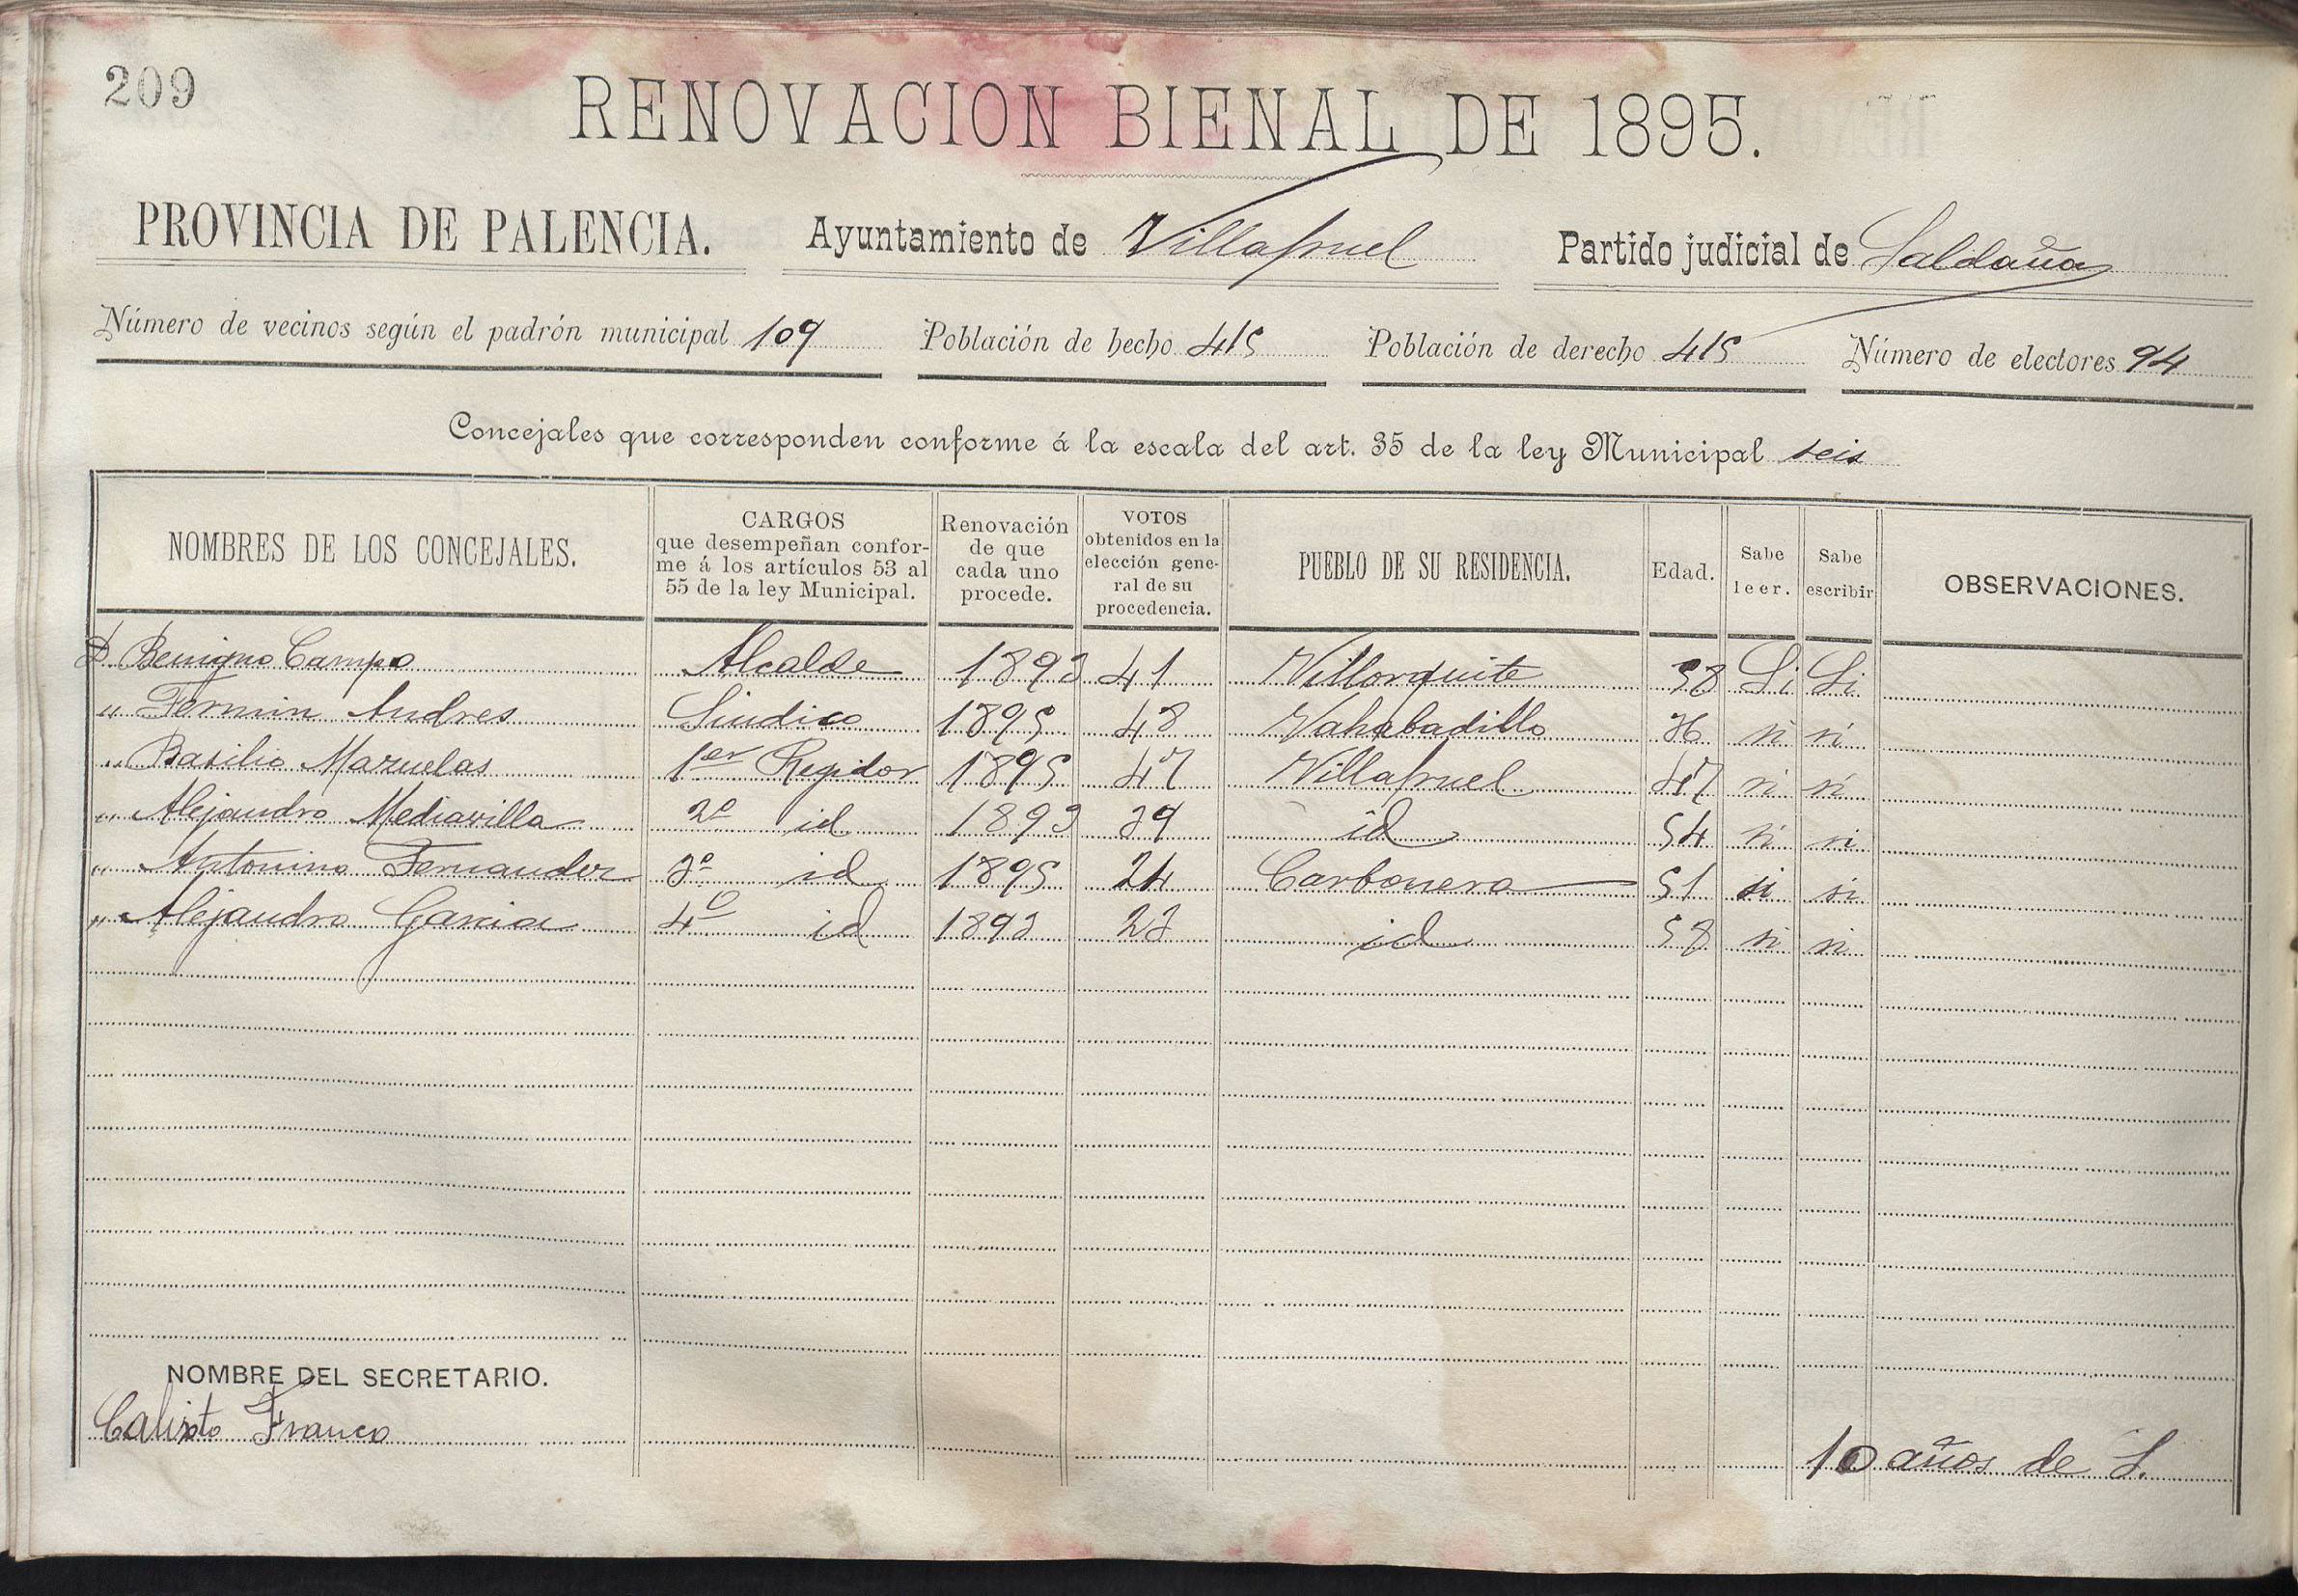 209
RENOVACION BIENAL DE 1895.
PROVINCIA DE PALENCIA. Ayuntamiento de Villapruel Partido judicial de Saldaña
Número de vecinos según el padrón municipal 109 Población de hecho 415 Población de derecho 415 Número de electores 94
Concejales que corresponden conforme á la escala del art. 35 de la ley Municipal seis
NOMBRES DE LOS CONCEJALES. CARGOS que desempeñan confor- me á los artículos 53 al 55 de la ley Municipal. Renovación de que cada uno procede. VOTOS obtenidos en la elección gene- ral de su procedencia. PUEBLO DE SU RESIDENCIA. Edad. Sabe leer. Sabe escribir OBSERVACIONES.
D. Benigno Campo Alcalde 1893 41 Villorquite 38 Si Si
" Fermin Andres Sindico 1895 48 Vahabadillo si si
" Basilio Mazuelas 1er Regidor 1895 47 Villapruel 47 si si
" Alejandro Mediavilla 2º id 1893 39 id 54 si si
" Antonino Fernandez 3º id 1895 24 Carbonera 51 si si
" Alejandro Garcia 4º id 1893 23 id 58 si si
NOMBRE DEL SECRETARIO.
Calixto Franco 10 años de S.